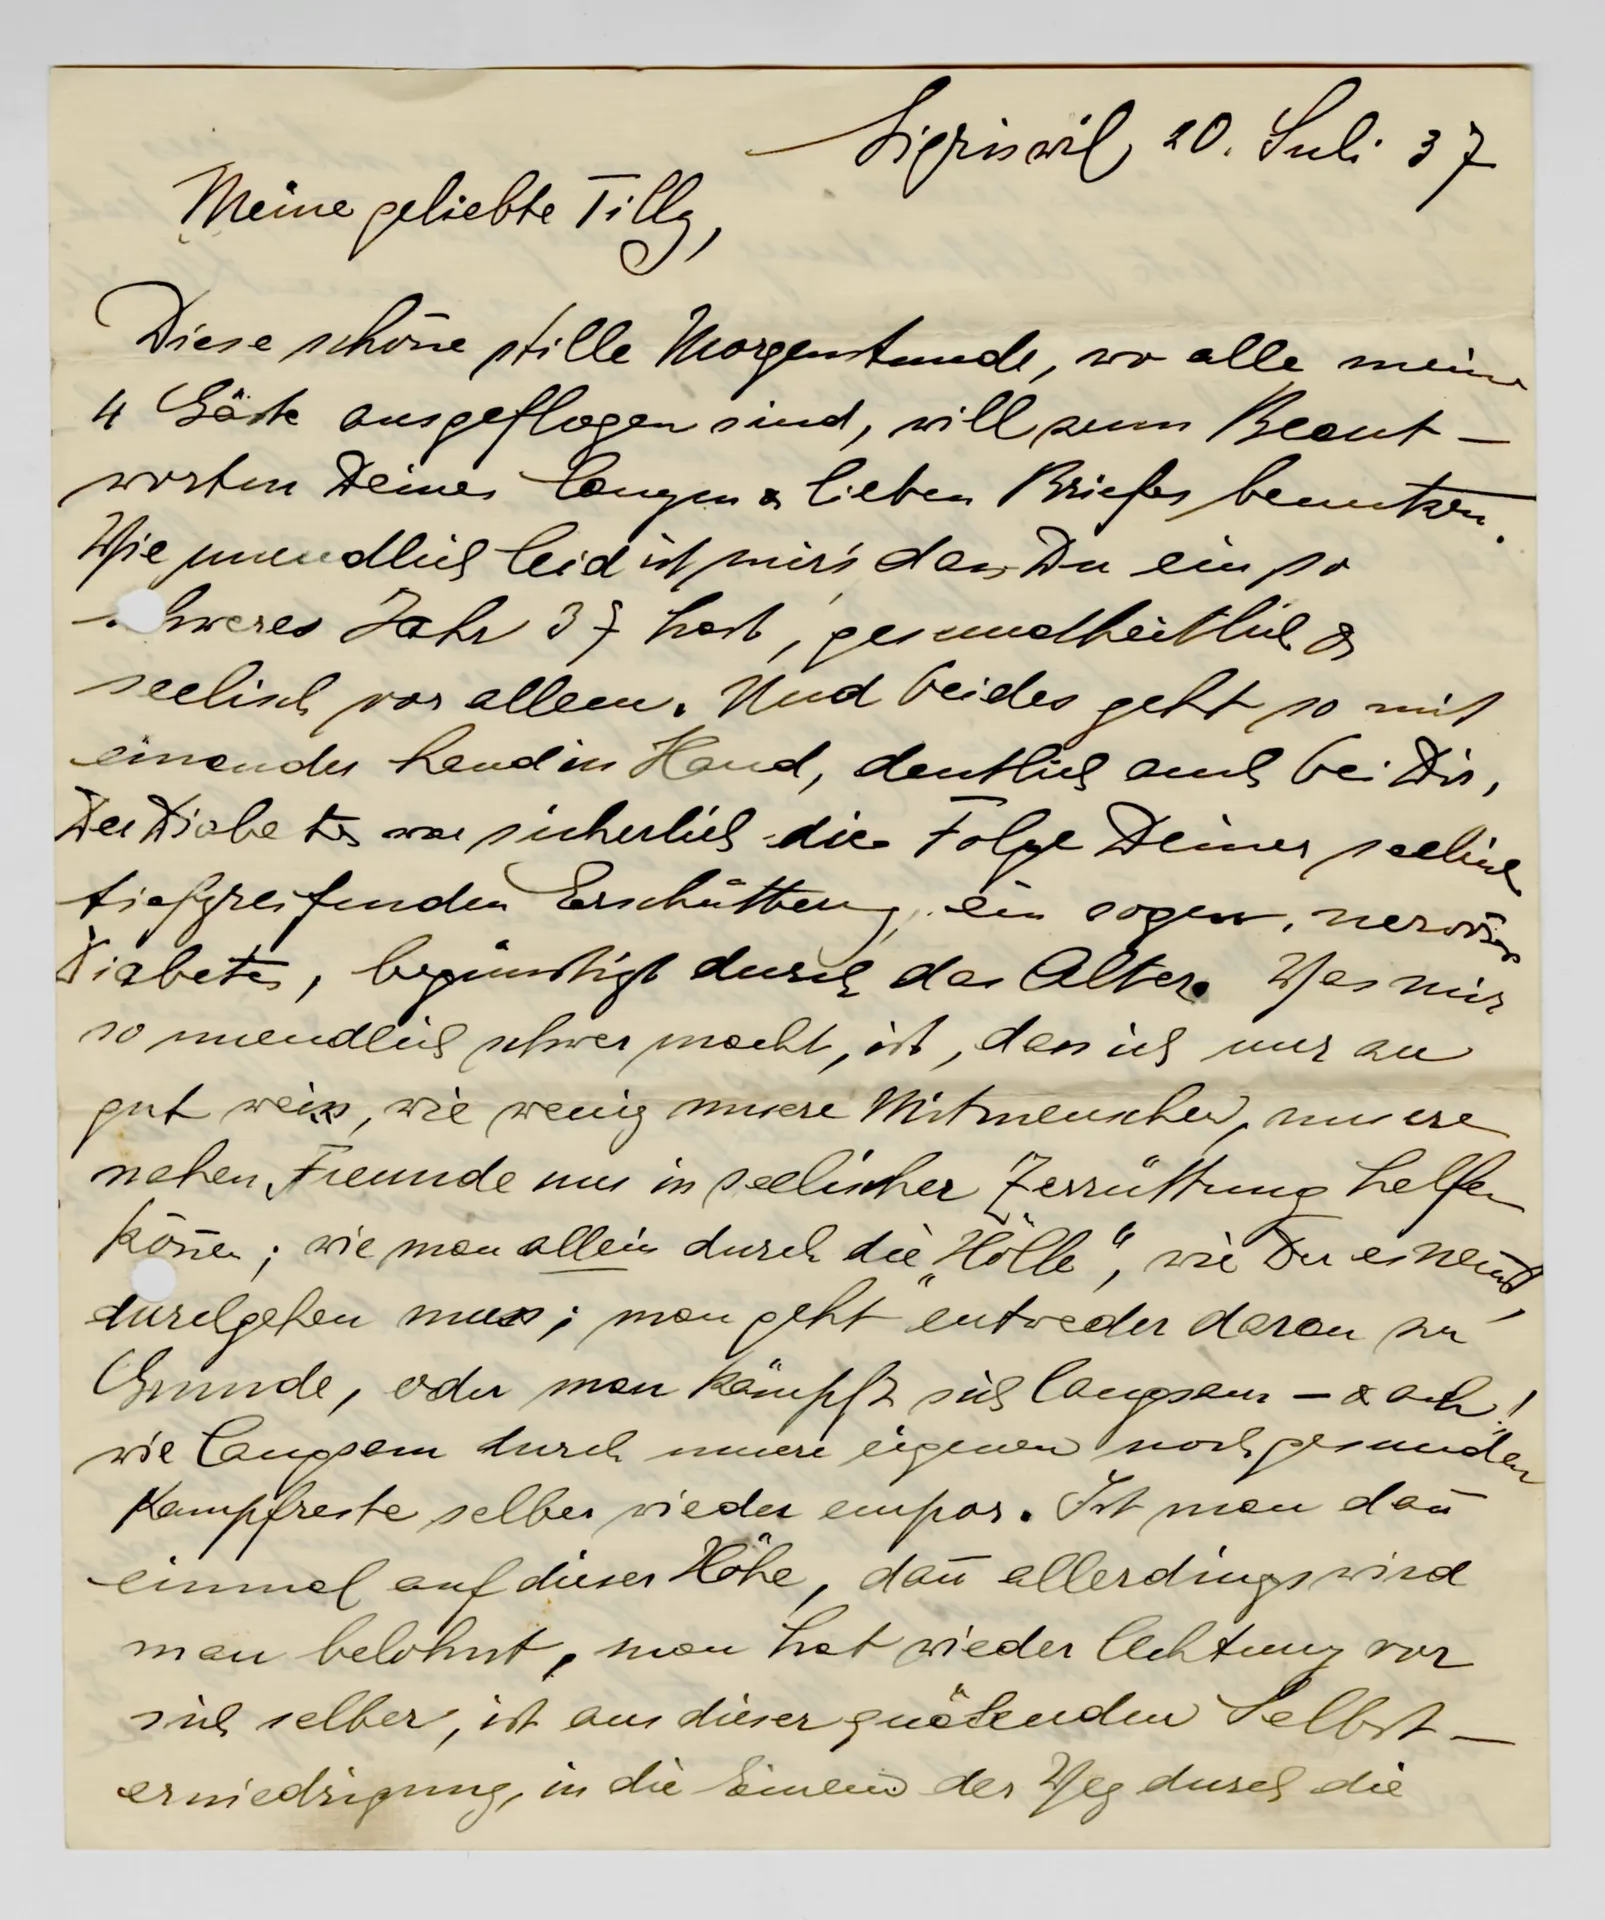 Sigriswil, 20. Juli 37
Meine geliebte Tilly,
Diese schöne stille Morgenstunde, wo alle meine
4 Gäste ausgeflogen sind, will zum Beant-
worten Deines langen & lieben Briefes benutzen.
Wie unendlich leid ist mir's dass Du ein so
schweres Jahr 37 hast, gesundheitlich &
seelisch vor allem. Und beides geht so mit
einander hand in Hand, deutlich auch bei Dir,
Der Diabetes war sicherlich die Folge Deiner seelisch
tiefgreifenden Erschütterung, ein sogen. nervöser
Diabetes, begünstigt durch das Alter. Was mir
so unendlich schwer macht, ist, dass ich nur zu
gut weiss, wie wenig unsere Mitmenschen, unsere
nahen Freunde uns in seelischer Zerrüttung helfen
kön̄en; wie man allein durch die „Hölle", wie Du es nen̄st,
durchgehen muss; man geht entweder daran zu
Grunde, oder man kämpft sich langsam – & ach!
wie langsam durch unsere eigenen noch gesunden
Kampfreste selber wieder empor. Ist man dan̄
einmal auf dieser Höhe, dan̄ allerdings wird
man belohnt, man hat wieder Achtung vor
sich selber, ist aus dieser quälenden Selbst-
erniedrigung, in die Einem der Weg durch die